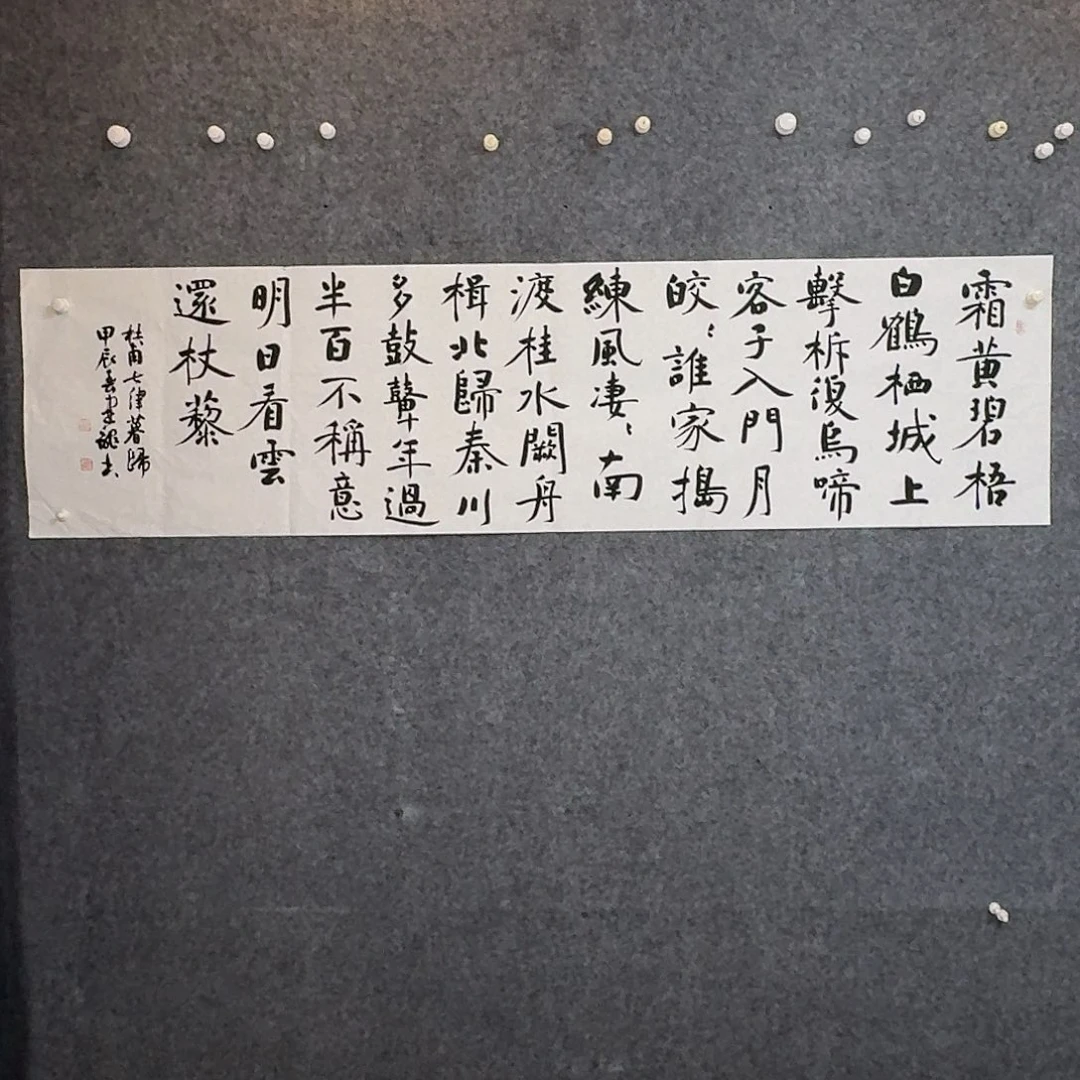 霜黄碧梧
白鶴栖城上
擊柝復烏啼
客子入門月
皎〻誰家搗
練風凄〻南
渡桂水闕舟
楫北歸秦川
多鼓鼙年過
半百不稱意
明日看雲
還杖藜
杜甫七律暮歸
甲辰春書